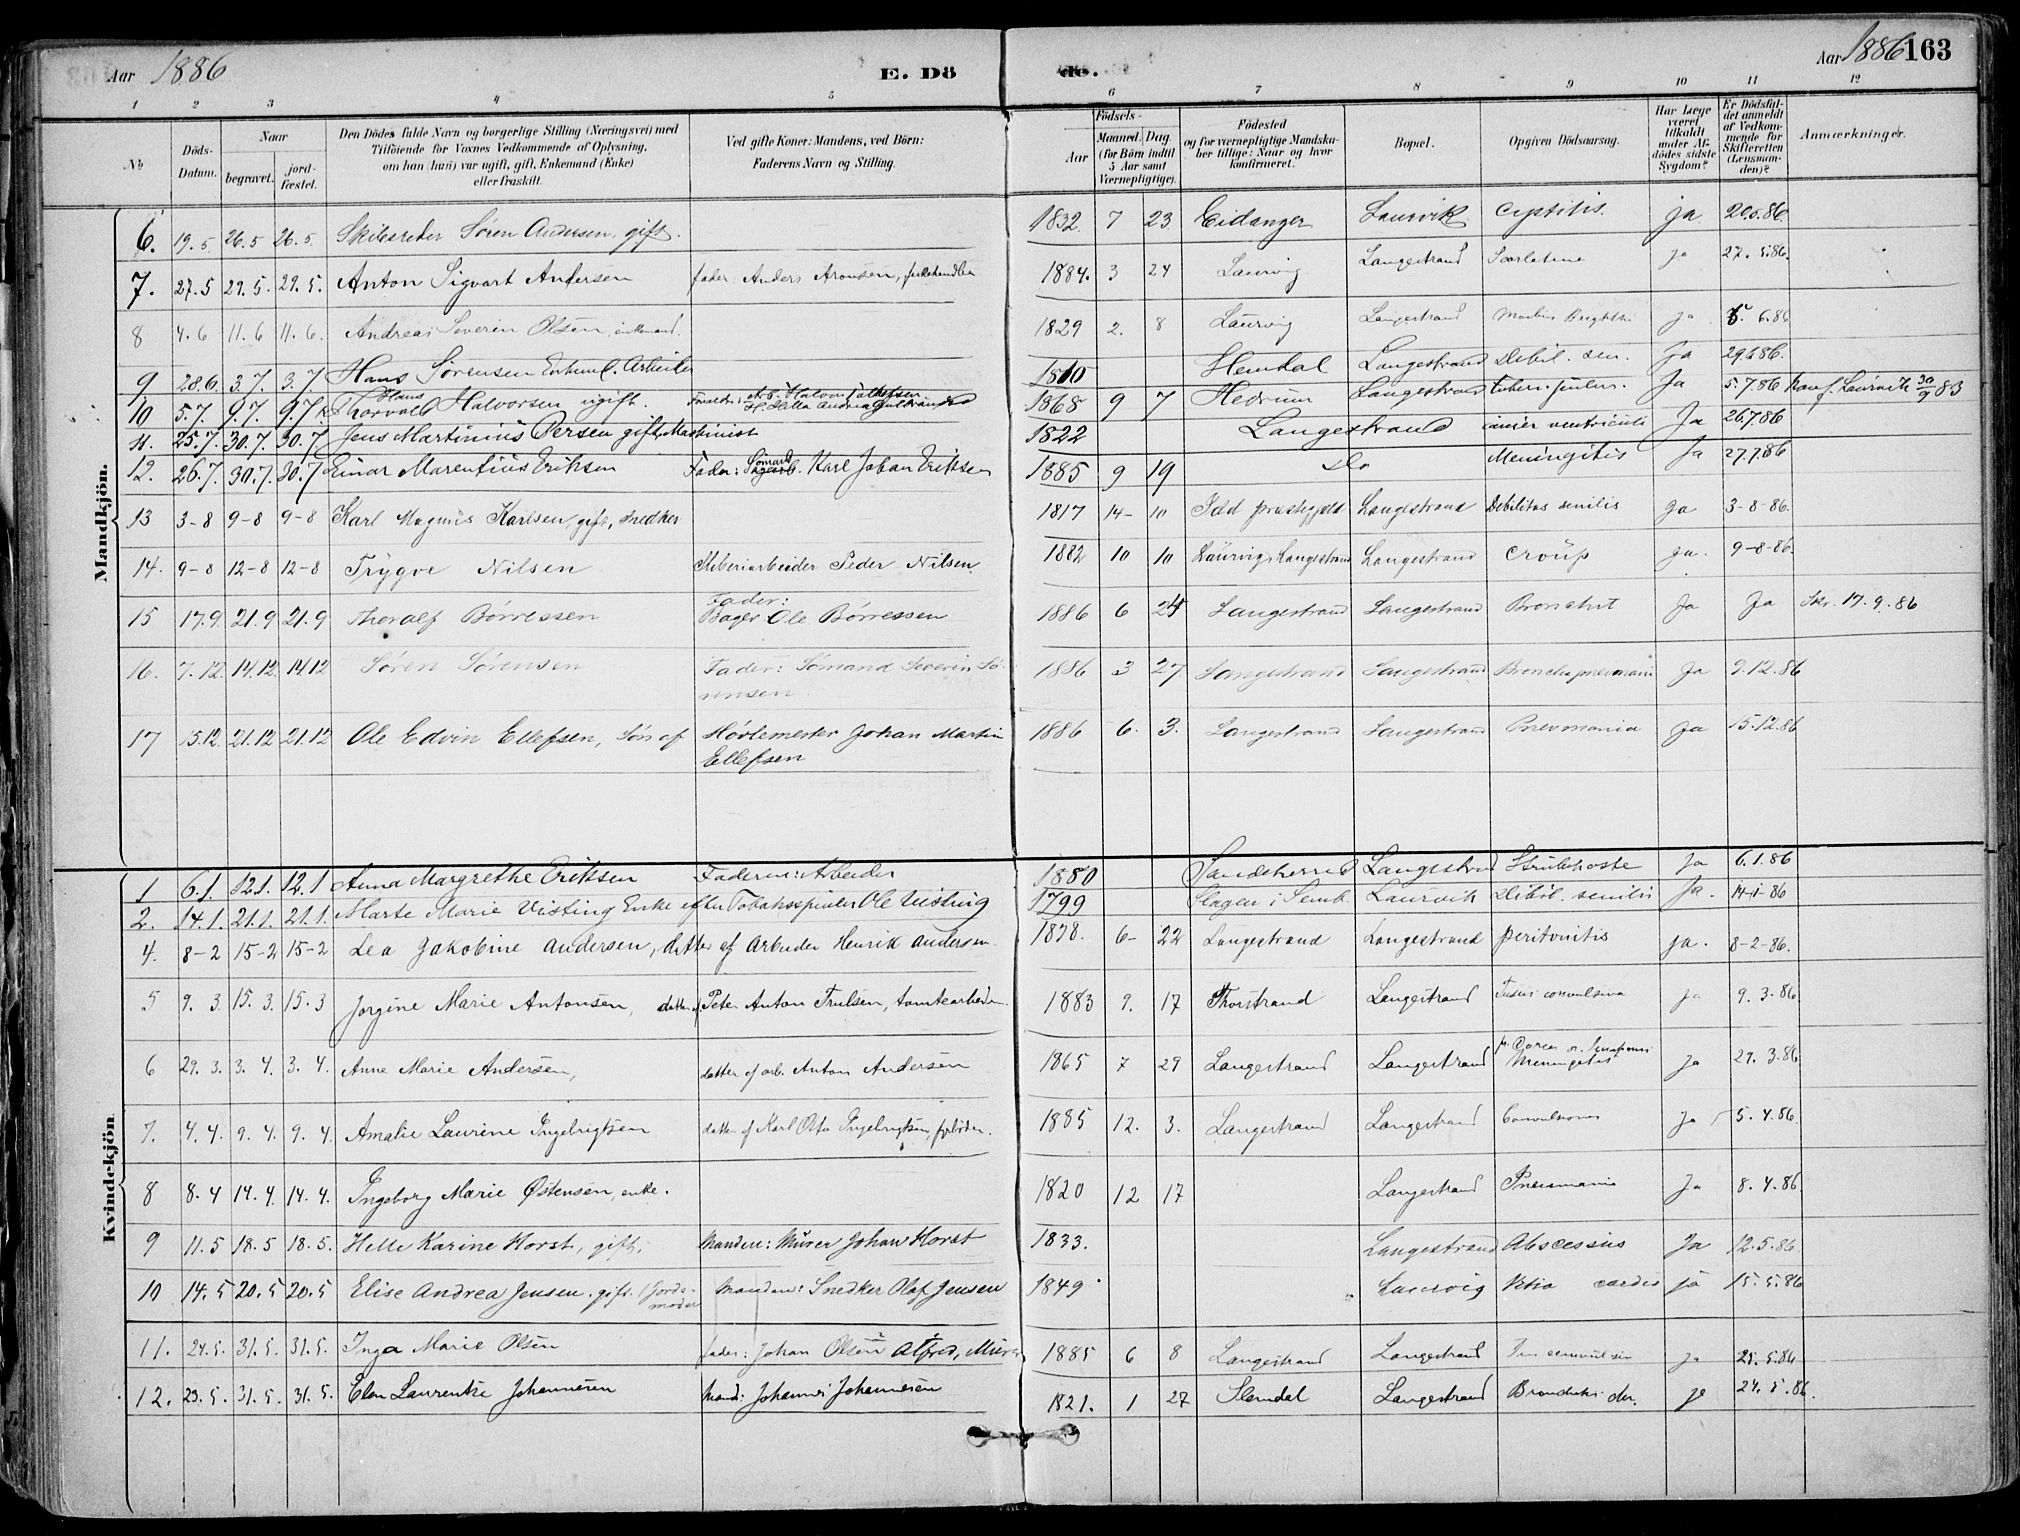 Aar 1886 E. Dö de. Aar 1886 163
1 2 3 4 5 6 7 8 9 10 11 12
№ Döds-Datum. Naar begravet. jord-fæstet. Den Dödes fulde Navn og borgerlige Stilling (Næringsvei) med Tilföiende for Voxnes Vedkommende af Oplysning, om han (hun) var ugift, gift, Enkemand (Enke) eller fraskilt. Ved gifte Koner: Mandens, ved Börn: Faderens Navn og Stilling. Födsels- Aar Maaned. Dag. (for Börn indtil 5 Aar samt Værnepligtige). Födested og for værnepligtige Mandskaber tillige: Naar og hvor konfirmeret. Bopæl. Opgiven Dödsaarsag. Har Læge været tilkaldt under Afdödes sidste Sygdom? Er Dödsfaldet anmeldt af Vedkommende for Skifteretten (Lensmanden)? Anmærkninger.
Mandkjön.
6. 19.5 26.5 26.5. Skibsreder Søren Andersen, gift. 1832 7 23 Eidanger Laurvik Cystitis. ja 20.5.86.
7. 27.5 29.5. 29.5. Anton Sigvart Andersen fader: Anders Aronsen, 1884. 3 24 Laurvig Langestrand Scarlatina ja 27.5.86.
8 4.6 11.6 11.6. Andreas Severin Olsen, enkemand. 1829 2. 8 Laurvig Langestrand Morbus Brightii ja 6.86
9 28.6 3.7. 3.7 Hans Sørensen Enkem. Arbeider 1810 Hemdal Langestrand Debil. sen. Ja 29.6.86.
10 5.7. 9.7. 9.7. Hans Thorvald Halvorsen ugift. Forældre: Halvor 1868 9 7 Hedrum Langestrand tuber. pulm. Ja 5.7.86 Konf. Laurvik 30/9 83
11. 25.7. 30.7. 30.7. Jens Martinius Persen gift, Maskinist 1822 Langestrand cancer ventriculi Ja 26.7.86
12. 26.7. 30.7. 30.7 Einar Marentius Eriksen Fader: Sømand Karl Johan Eriksen 1885 9 19 Do Meningitis Ja 27.7.86
13 3-8 9-8 9-8 Karl Magnus Karlsen, gift, snedker 1817 14- 10 Idd præstegjeld Langestrand Debilitas senilis ja 3-8-86.
14. 9-8 12-8 12-8 Trygve Nilsen Peder Nilsen. 1882 10 10 Laurvig, Langestrand Langestrand Croup ja. 9-8-86.
15 17.9. 21.9 21.9 Thoralf Børressen Fader: Bager Ole Børressen 1886 6 24 Langestrand Langestrand Bronchit Ja Ja Skr. 17.9.86
16. 7.12. 14.12. 14.12 Søren Sørensen Fader: Sømand Severin Sø-
rensen. 1886 3 27 Langestrand Langestrand Bronchopneumoni Ja 9.12.86
17 13.12. 21.12 21.12 Ole Edvin Ellefsen, Søn af Høvlemester Johan Martin
Ellefsen 1886 6. 3. Langestrand Langestrand Pneumonia Ja 15.12.86
Kvindekjön
1 6.1. 12.1. 12.1 Anna Margrethe Eriksen Faderen: Arbeider 1880 Sandeherred Langestrand Strubehoste Ja 6.1.86
2. 14.1. 21.1. 21.1. Marte Marie Visting Enke efter Tobaksspinder Ole Visting 1799 Slagen i Semb. Laurvik Debil. senilis Ja. 14-1-86
4. 8-2 15-2 15-2 Lea Jakobine Andersen, datter af Arbeider Henrik Andersen. 1878. 6- 22 Langestrand Langestrand peritonitis ja. 8-2-86.
5 9.3. 15.3. 15.3 Jorgine Marie Antonsen, datter af Peter Anton Trulsen, tomtearbeider. 1883 9. 17 Thorstrand Langestrand Tussis convulsiva ja 9.3.86.
6 29.3. 3.4. 3.4. Anne Marie Andersen, datter af arb. Anton Andersen 1865 7 29 Langestrand Langestrand Meningitis ja 29.3.86
7. 4.4. 9.4. 9.4. Amalie Laurine Ingebrigtsen datter af Karl Otto Ingebrigtsen, fyrbøder. 1885 12. 3. Langestrand Langestrand Convulsiones Ja 5.4.86.
8 8.4 14.4. 14.4. Ingeborg Marie Østensen, enke. 1820 12 17 Langestrand Pneumonia Ja 8.4.86.
9 11.5 18.5 18.5. Helle Karine Horst, gift. Manden: Murer Johan Horst 1833. Langestrand Abscessus Ja 12.5.86.
10 14.5 20.5 20.5 Elise Andrea Jensen. gift. Jordemoder Manden: Snedker Olaf Jensen 1849 Laurvig Vitia cordis ja 15.5.86
11. 24.5. 31.5. 31.5. Inga Marie Olsen fader: Johan Olsen Alfred, Murer 1885 6 8 Langestrand Langestrand ja 25.5.86
12. 23.5. 31.5. 31.5. Elen Laurentse Johannesen Mand: Johannes Johannesen 1821. 1 27 Slemdal Langestrand ja 24.5.86.